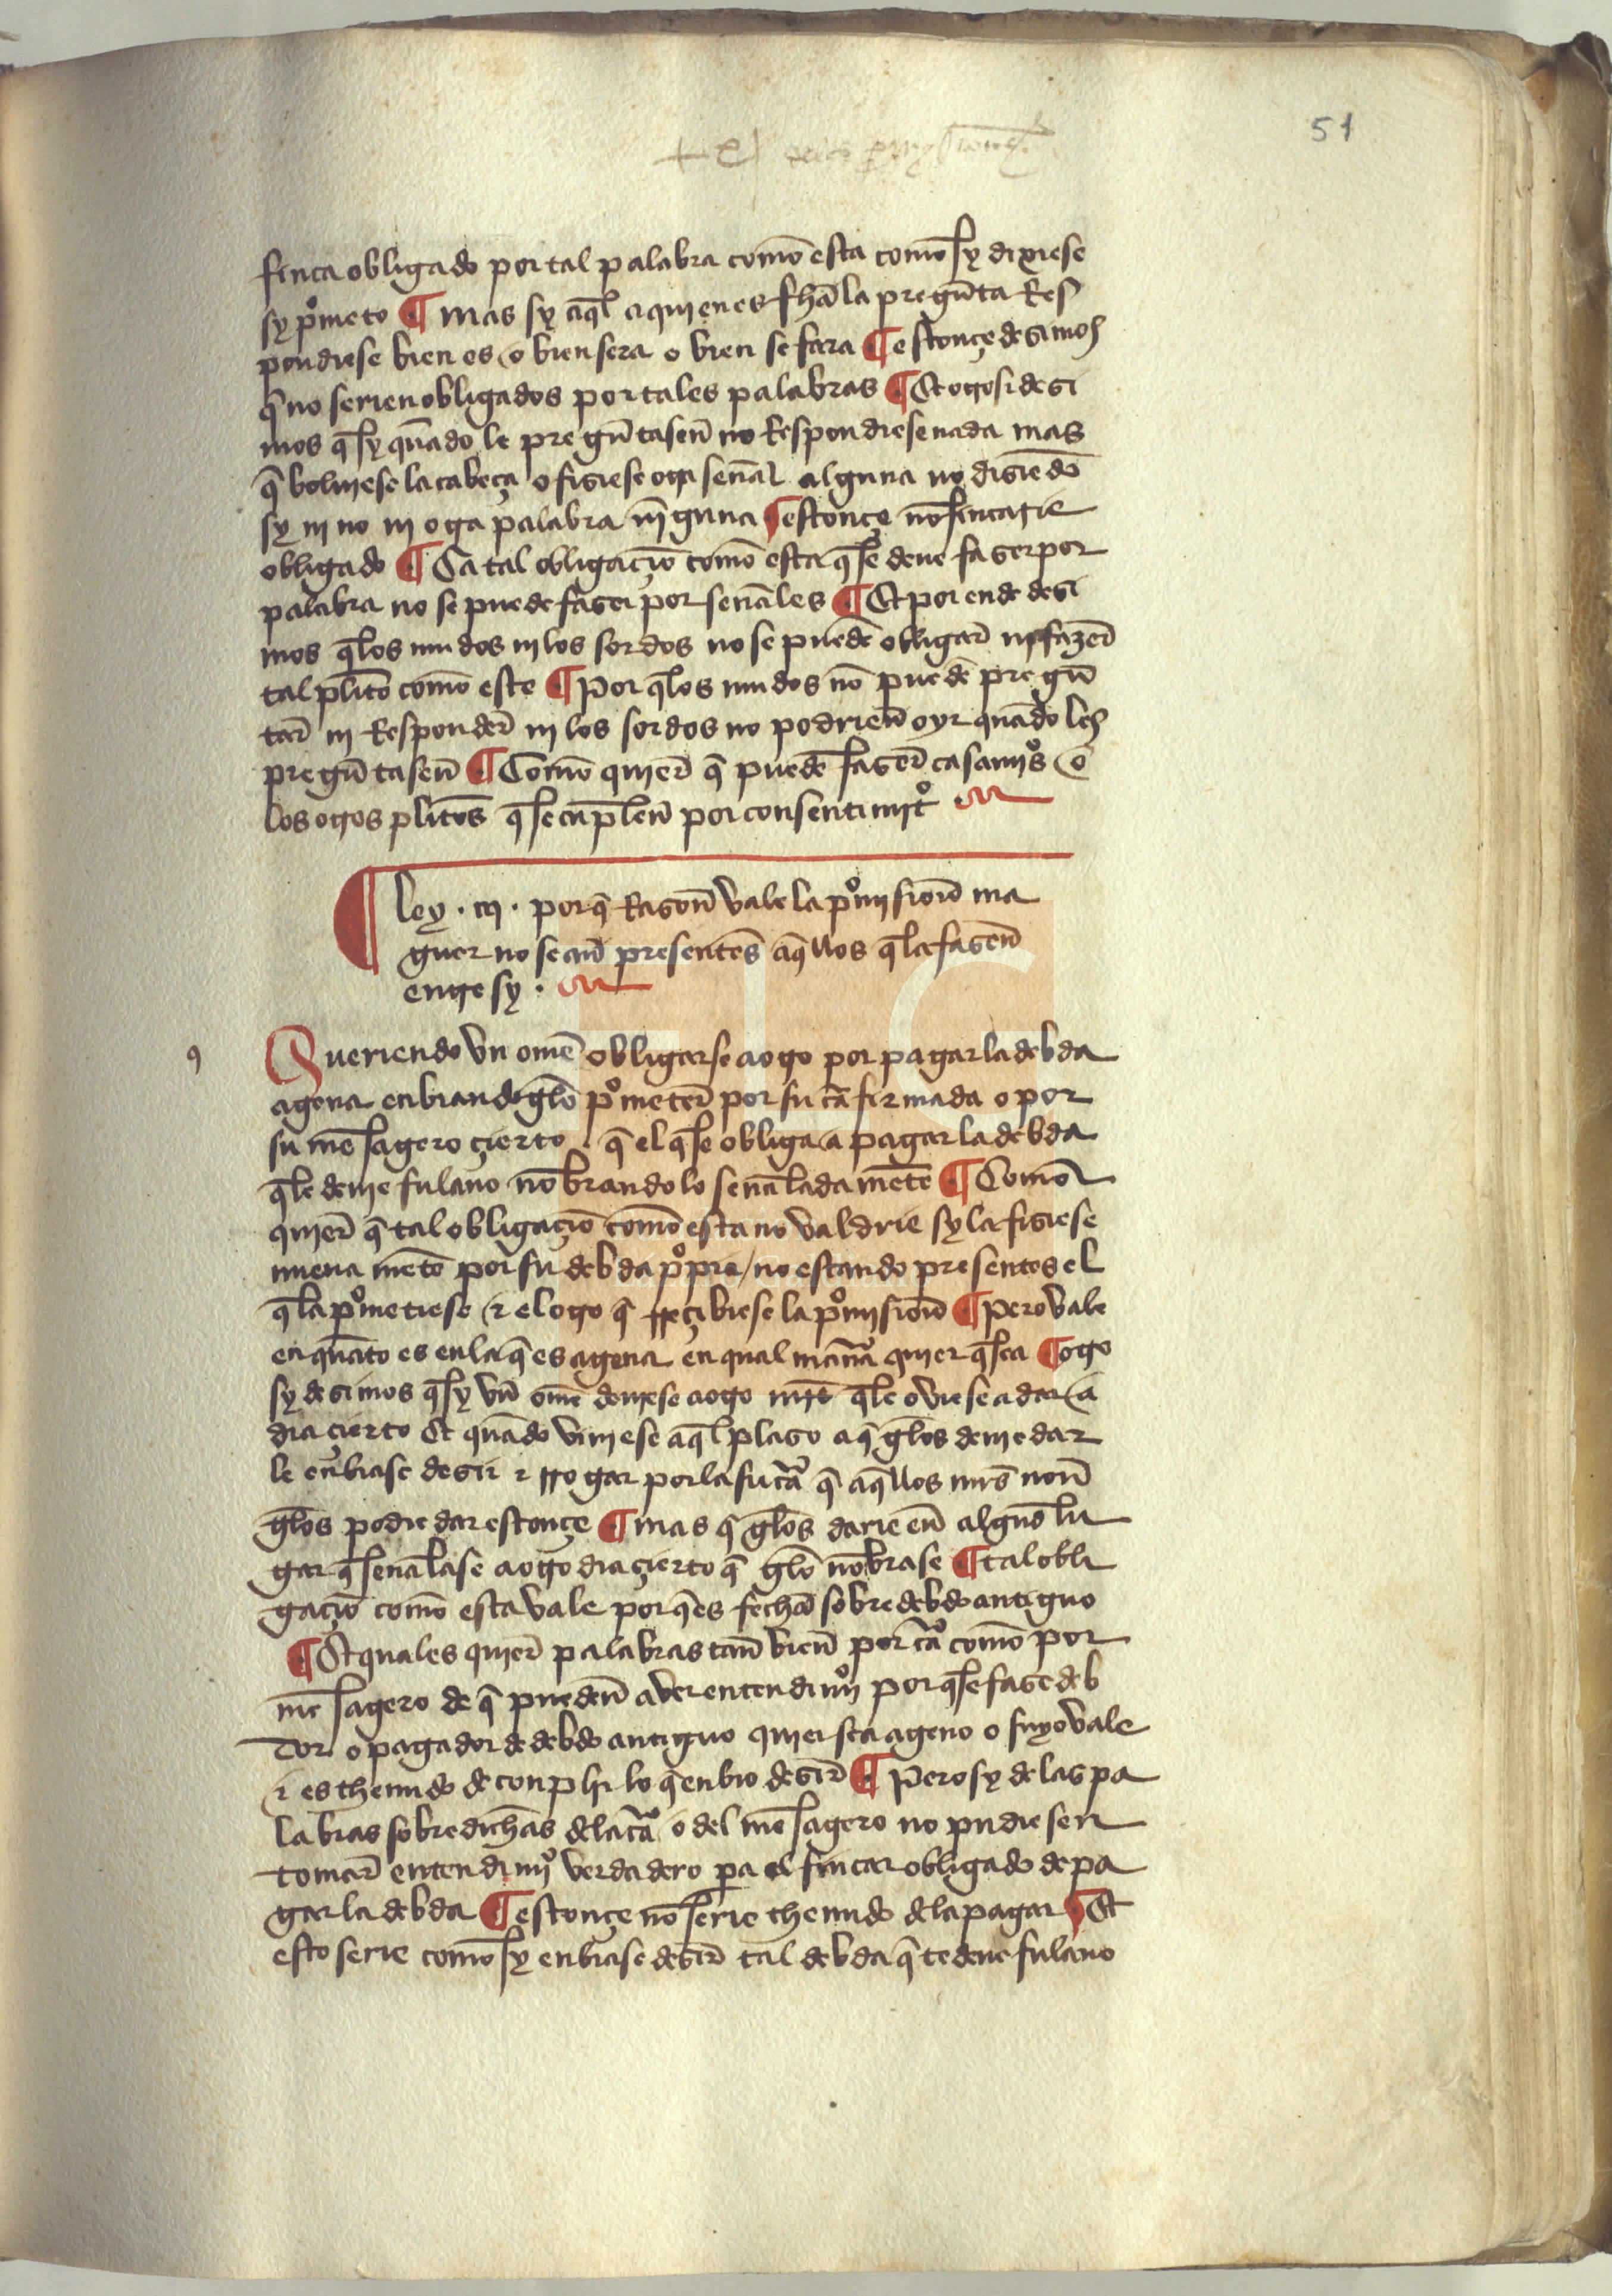 51
finca obligado por tal palabra comō esta comō sy dixiese
sy p̊meto ¶ mas sy aq̄l a quien es fhā la pregūta Res
pondiese bien es o bien sera o bien se fara ¶ estonçe desimos
q̄ no serien obligados por tales palabras ¶ Et otrosi desi
mos q̄ sy quādo le pregūtasen̄ no Respondiese nada mas
q̄ boluiese la cabeça o fisiese otra señal alguna no disiēdo
sy ni no ni otra palabra nīguna ¶ estonçe nō fincarie
obligado ¶ Ca tal obligaçiō comō esta q̄ se deue faser por
palabra no se puede faser por señales ¶ Et por ende desi
mos q̄ los mudos ni los sordos no se puedē obligar̄ ni fazer̄
tal plito comō este ¶ Por q̄ los mudos nō puedē pregū
tar̄ ni Responder̄ ni los sordos no podrien̄ oyr quādo les
pregūtasen̄ ¶ Comō quier̄ q̄ puedē faser̄ casamīos o
los otros plitos q̄ se cūplen̄ por consentimīto
¶ Ley . iij . por q̄ Rason̄ vale la p̊misiōn ma
guer no sean̄ presentes aq̄llos q̄ la fasen̄
entre sy .
Queriendo vn omē obligarse a otro por pagar la debda
agena enbiandogelo p̊meter̄ por su cā firmada o por
su mēsagero çierto . q̄ el q̄ se obliga a pagar la debda
q̄ le deue fulano nōbrandolo señaladamēte ¶ Comō
quier̄ q̄ tal obligaçiō comō esta no valdrie sy la fisiese
nueua mēte por su debda p̊pia / no estando presentes el
q̄ la p̊metiese τ el otro q̄ rreçibiese la p̊misiōn ¶ Pero vale
en quāto es en la q̄ es agena en qual man̄a quier q̄ sea ¶ otro
sy desimos q̄ sy vn̄ omē deuiese a otro mr̄s q̄ le ouiese a dar a
dia çierto Et quādo viniese aq̄l plaso a q̄ gelos deuie dar
le enbiase desir τ rrogar por la su cā q̄ aq̄llos mr̄s non̄
gelos podie dar estonçe ¶ mas q̄ gelos darie en̄ algūo lu
gar q̄ señalase a otro dia çierto q̄ gelo nōbrase ¶ tal obli
gaçiō comō esta vale por q̄ es fecha sobre debdo antiguo
¶ Et quales quier̄ palabras tan̄ bien̄ por cā comō por
mēsagero de q̄ pueden̄ aver entendimīo por q̄ se fase deb
dor o pagador de debdo antiguo quier sea ageno o suyo vale
τ es thenudo de conplir lo q̄ enbio desir̄ ¶ Pero sy de las pa
labras sobredichas dela cā o del mēsagero no pudiesen
tomar̄ entendimīo verdadero pa el fincar obligado de pa
gar la debda ¶ estonçe nō serie thenudo dela pagar ¶ Et
esto serie comō sy enbiase desir̄ tal debda q̄ te deue fulano